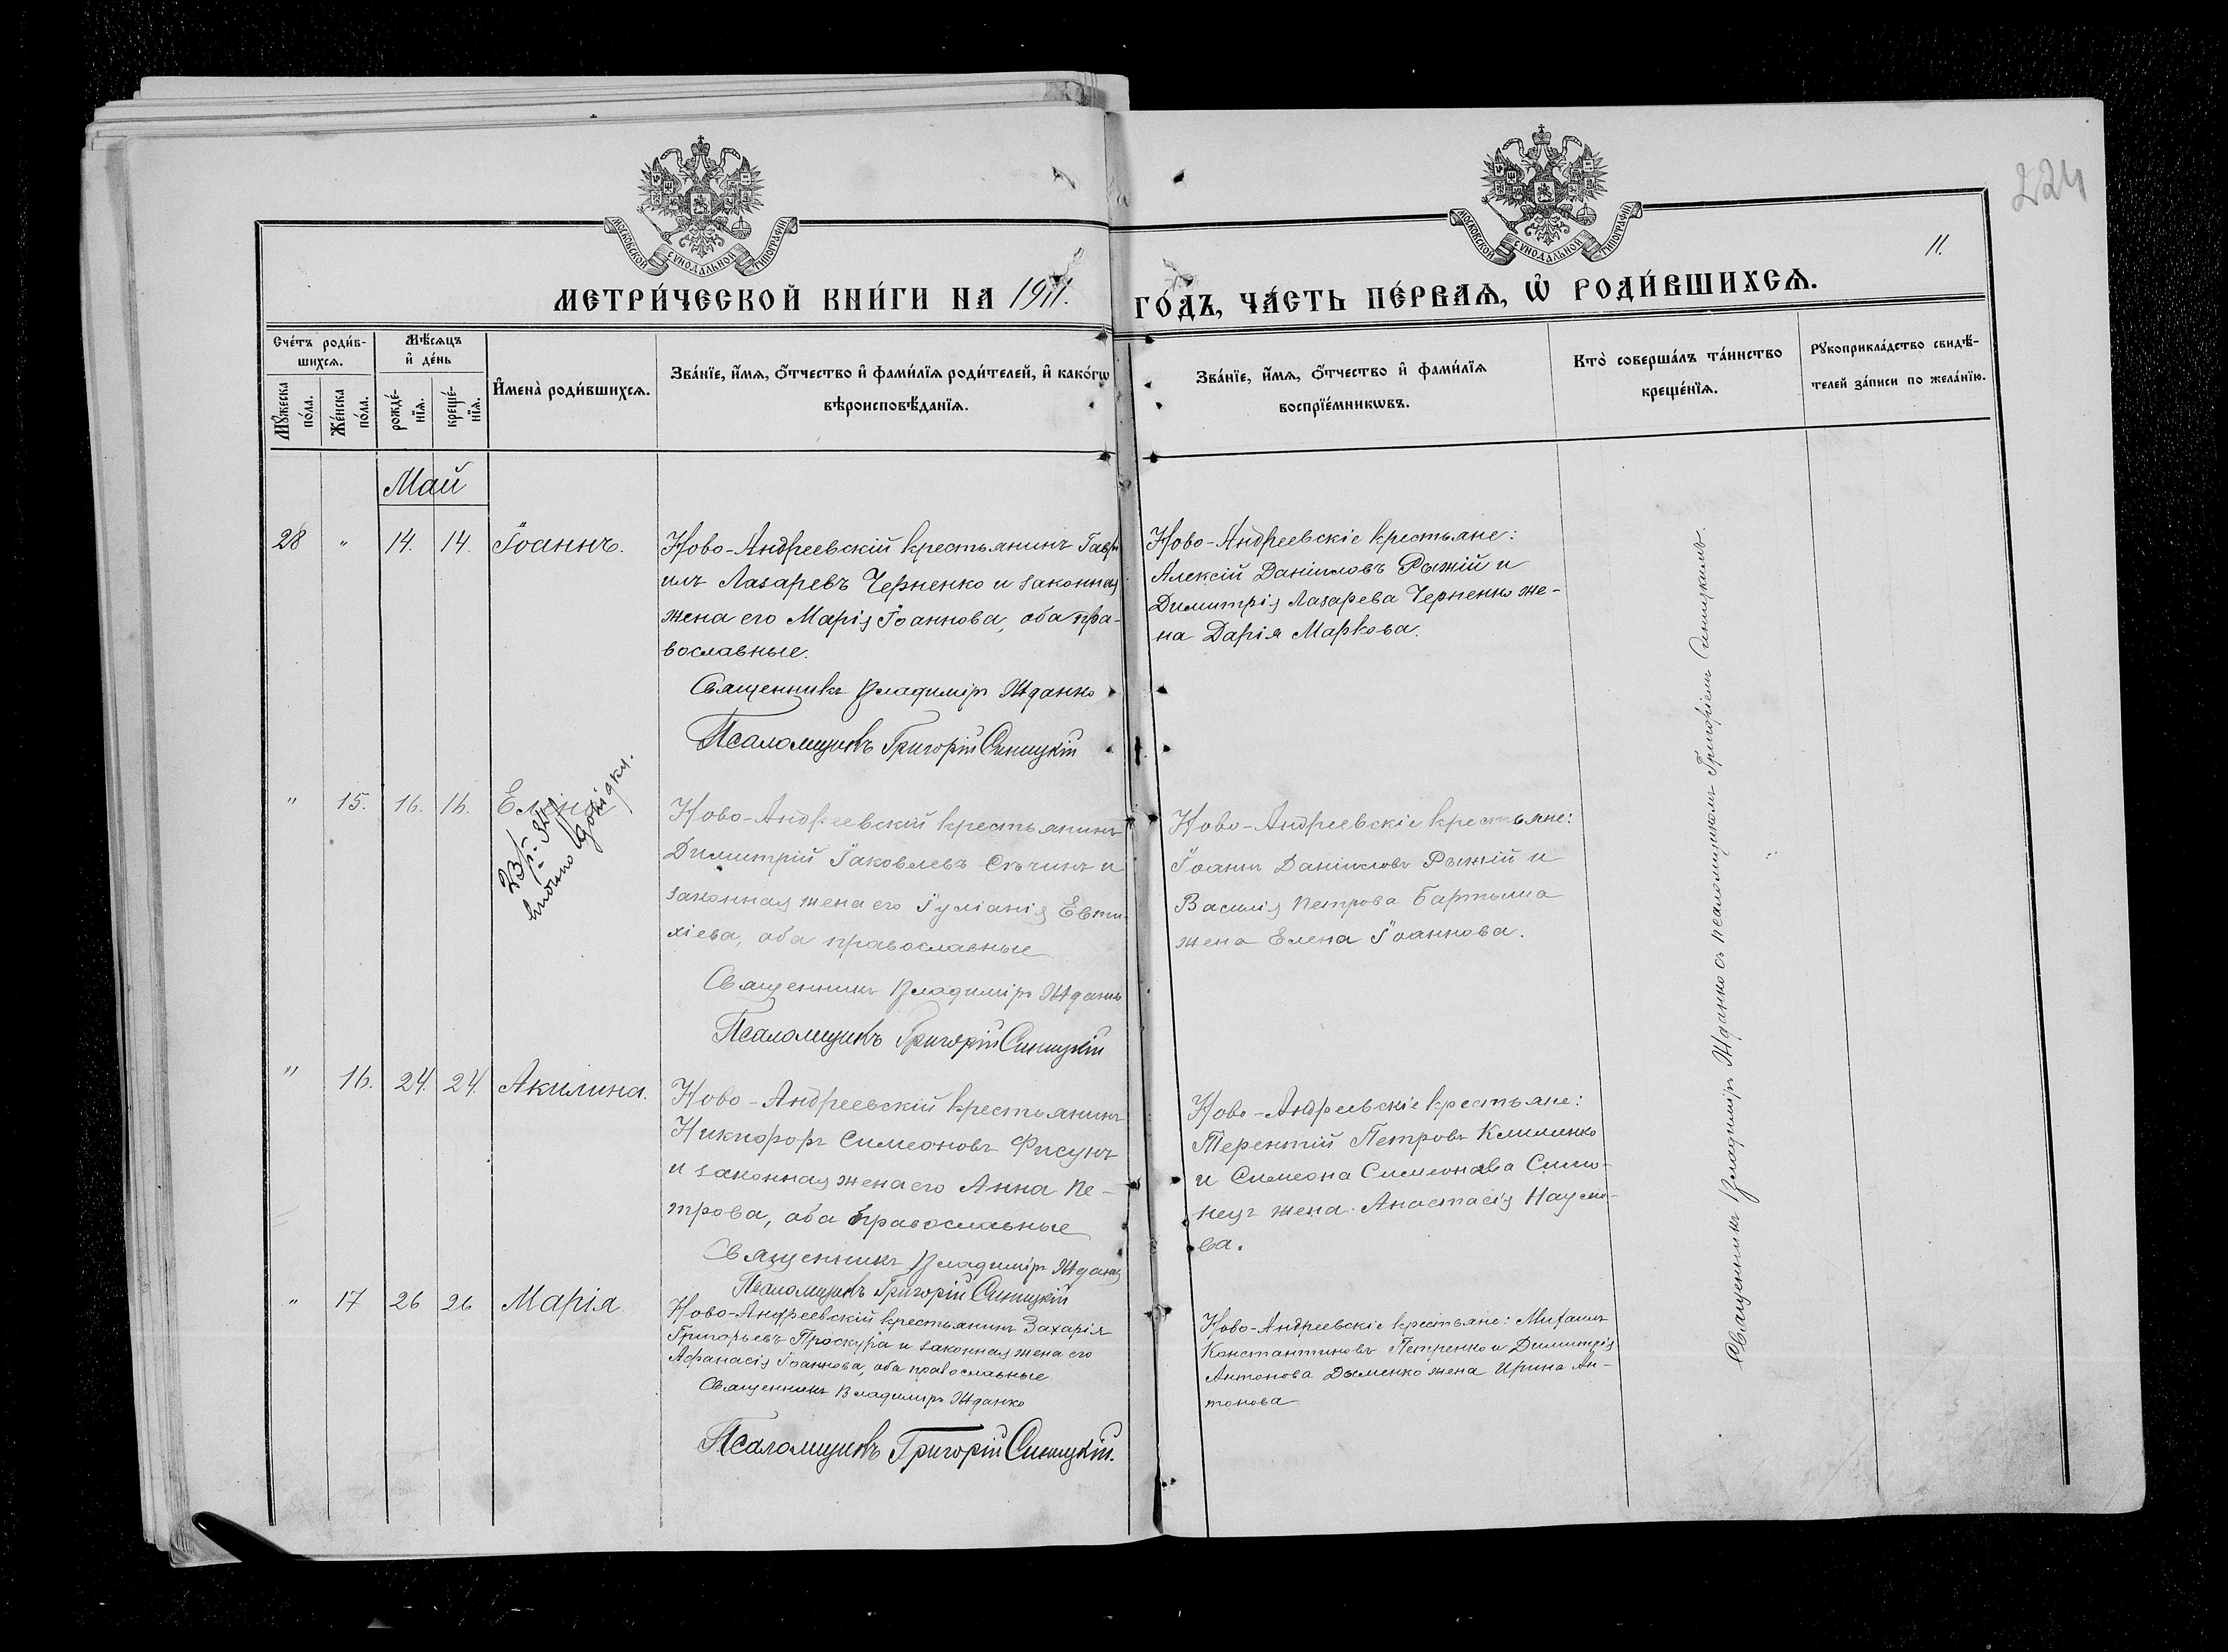 224
МОСКОВСКОЙ СѴНОДАЛЬНОЙ ТИПОГРАФІИ
МОСКОВСКОЙ СѴНОДАЛЬНОЙ ТИПОГРАФІИ
11.
МЕТРИ́ЧЕСКОЙ КНИ́ГИ НА 1911. ГО́ДЪ, ЧА́СТЬ ПЕ́РВАѦ, Ѡ҆ РОДИ́ВШИХСѦ.
Сче́тъ роди́в-
шихсѧ.
Мꙋ́жеска по́ла.
Же́нска по́ла.
Мѣ́сѧцъ
и҆ де́нь
рожде́-
нїѧ.
креще́-
нїѧ.
И҆мена̀ роди́вшихсѧ.
Зва́нїе, и҆́мѧ, ѻ҆́тчество и҆ фами́лїѧ роди́телей, и҆ како́гѡ
вѣроисповѣ́данїѧ.
Зва́нїе, и҆́мѧ, ѻ҆́тчество и҆ фами́лїѧ
воспрїе́мникѡвъ.
Кто̀ соверша́лъ та́инство
креще́нїѧ.
Рꙋкоприкла́дство свидѣ́-
телей за́писи по жела́нїю.
Май
28 " 14. 14. Іоаннъ.
Ново-Андреевскій крестьянинъ Гаврі
илъ Лазаревъ Черненко и законная
жена его Марія Іоаннова, оба пра-
вославные.
Священникъ Владиміръ Жданко
Псаломщикъ Григорій Синицкій
Ново-Андреевскіе крестьяне:
Алексій Даніиловъ Рыжій и
Димитрія Лазарева Черненко же-
на Дарія Маркова.
" 15. 16. 16. Елена
Ново-Андреевскій крестьянинъ
Димитрій Іаковлевъ Сѣчинъ и
законная жена его Іуліанія Евти-
хіева, оба православные
Священникъ Владиміръ Жданко
Псаломщикъ Григорій Синицкій
Ново-Андреевскіе крестьяне:
Іоаннъ Даніиловъ Рыжій и
Василія Петрова Бартыша
жена Елена Іоаннова.
" 16. 24. 24. Акилина.
Ново-Андреевскій крестьянинъ
Никифоръ Симеоновъ Фисунъ
и законная жена его Анна Пе-
трова, оба православные
Священникъ Владиміръ Жданко
Псаломщикъ Григорій Синицкій
Ново-Андреевскіе крестьяне:
Терентій Петровъ Клименко
и Симеона Симеонова Симо-
нецъ жена Анастасія Наумо-
ва.
" 17 26 26 Марія.
Ново-Андреевскій крестьянинъ Захарія
Григорьевъ Проскура и законная жена его
Афанасія Іоаннова, оба православные.
Священникъ Владиміръ Жданко
Псаломщикъ Григорій Синицкій.
Ново-Андреевскіе крестьяне: Михаилъ
Константиновъ Петренко и Димитрія
Антонова Дыменко жена Ирина Ан-
тонова
Священникъ Владиміръ Жданко съ псаломщикомъ Григоріемъ Синицкимъ.